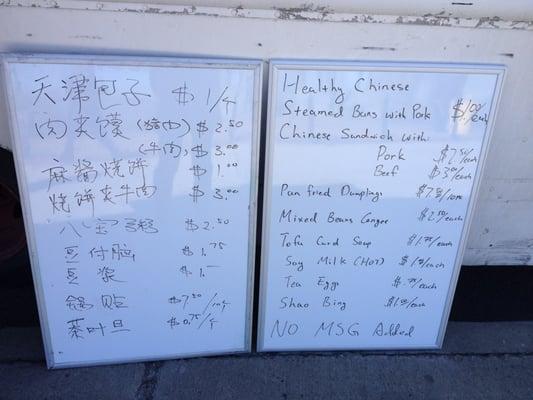 天津包子 $1/个
肉夹馍(猪肉) $2.50
(牛肉) $3.00
麻酱烧饼 $1.00
烧饼夹牛肉 $3.00
八宝粥 $2.50
豆付脑 $1.75
豆浆 $1.—
锅贴 $7.50/10个
茶叶旦 $0.75/个
Healthy Chinese
Steamed Buns with Pork $1.00/each
Chinese Sandwich with:
Pork $2.50/each
Beef $3.00/each
Pan fried Dumplings $7.50/10
Mixed Beans Congee $2.50/each
Tofu Curd Soup $1.75/each
Soy Milk (HOT) $1.00/each
Tea Eggs $.75/each
Shao Bing $1.00/each
NO MSG Added